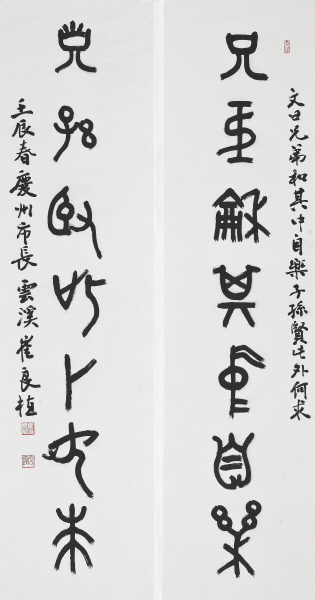 文曰兄弟和其中自樂子孫賢此外何求
兄弟龢其中自樂
子孫臤此外何求
壬辰春慶州市長雲溪崔良植